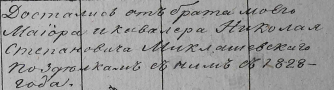 Достались отъ брата моего
Маіора и кавалера Николая
Степановича Миклашевскаго
по здѣлкамъ съ нимъ съ 1828-
года.